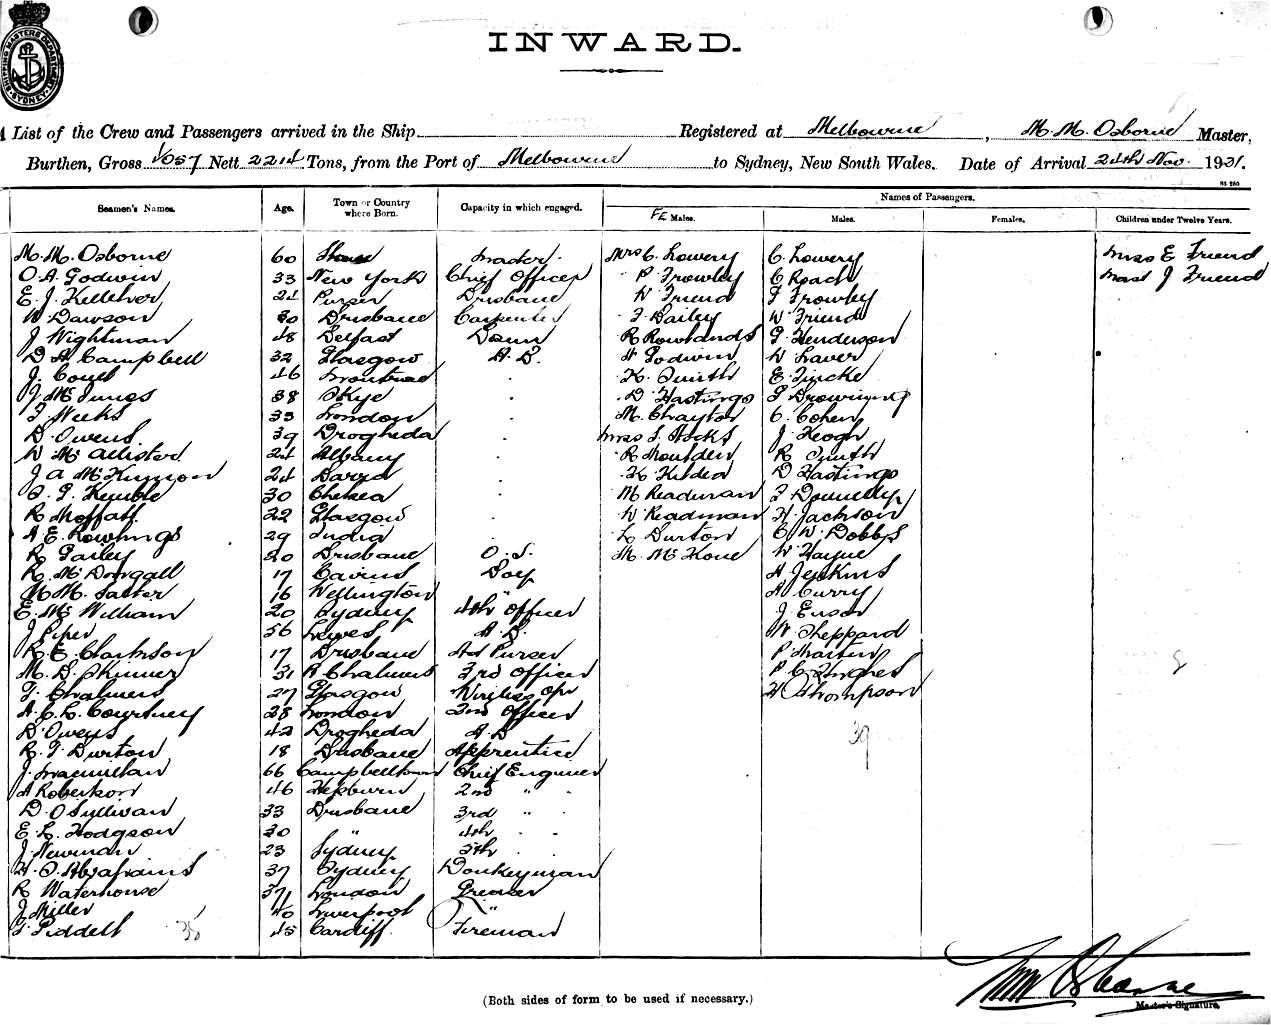 SHIPPING MASTERS DEPARTMENT SYDNEY
INWARD.
A List of the Crew and Passengers arrived in the Ship Registered at Melbourne, M. M. Osborne Master,
Burthen, Gross Nett 2214 Tons, from the Port of Melbourne to Sydney, New South Wales. Date of Arrival 24th Nov. 1931.
Seamen's Names. Age. Town or Country where Born. Capacity in which engaged. Names of Passengers.
FE Males. Males. Females. Children under Twelve Years.
M. M. Osborne 60 Master Mrs C. Lowery C. Lowery Miss E Friend
O. A. Godwin 33 New York Chief Officer " P. Frowley C Roach Mast J Friend
E. J. Kelleher 24 Purser Brisbane " W Friend F Frowley
W Dawson 30 Brisbane Carpenter " F. Bailey W Friend
J Wightman 48 Belfast Bosun " R Rowlands G Henderson
D A Campbell 32 Glasgow A. B. " A Godwin W Laver
J. 46 Montrose " K. Smith E. Fincke
J McInnes 38 Skye " D Hastings G Browning
F Weeks 33 London " M. Chaytor C. Cohen
D. Owens 39 Drogheda Miss S. Hocks J Keogh
W McAllister 24 Albany " R Moulden R Smith
J A McKinnon 24 Barra " K. Kildea D Hastings
F. G. Kemble 30 Chelsea " M Readman F Donnelly
R Moffatt 22 Glasgow " W Readman H Jackson
A E Rawlings 29 India " L Burton C W Dobbs
R Bailey 20 Brisbane O. S. " M. McHone W Hayne
R. McDougall 17 Cairns Boy A Jenkins
M M. Salter 16 Wellington " A Curry
E. McWilliam 20 Sydney 4th Officer J
J Piper 56 Lewes A. B. W. Sheppard
R. E. Clarkson 17 Brisbane Ast Purser P Martin
M. D. Skinner 31 P Chalmers 3rd Officer P C Hughes
T. Chalmers 27 Glasgow Wireless Opr H Thompson
A. C. L. Courtney 28 London 2nd Officer
D. Owens 42 Drogheda A. B 39
R. G Burton 18 Brisbane Apprentice
J. Macmillan 66 Campbelltown Chief Engineer
A Robertson 46 Hepburn 2nd " "
D. O Sullivan 33 Brisbane 3rd " "
E. L. Hodgson 30 " 4th " "
J. Newman 23 Sydney 5th
H. S. Abrahams 37 Sydney Donkeyman
R Waterhouse 37 London Greaser
J Miller 40 Liverpool "
T Piddell 38 45 Cardiff Fireman
M M Osborne
Master's Signature.
(Both sides of form to be used if necessary.)